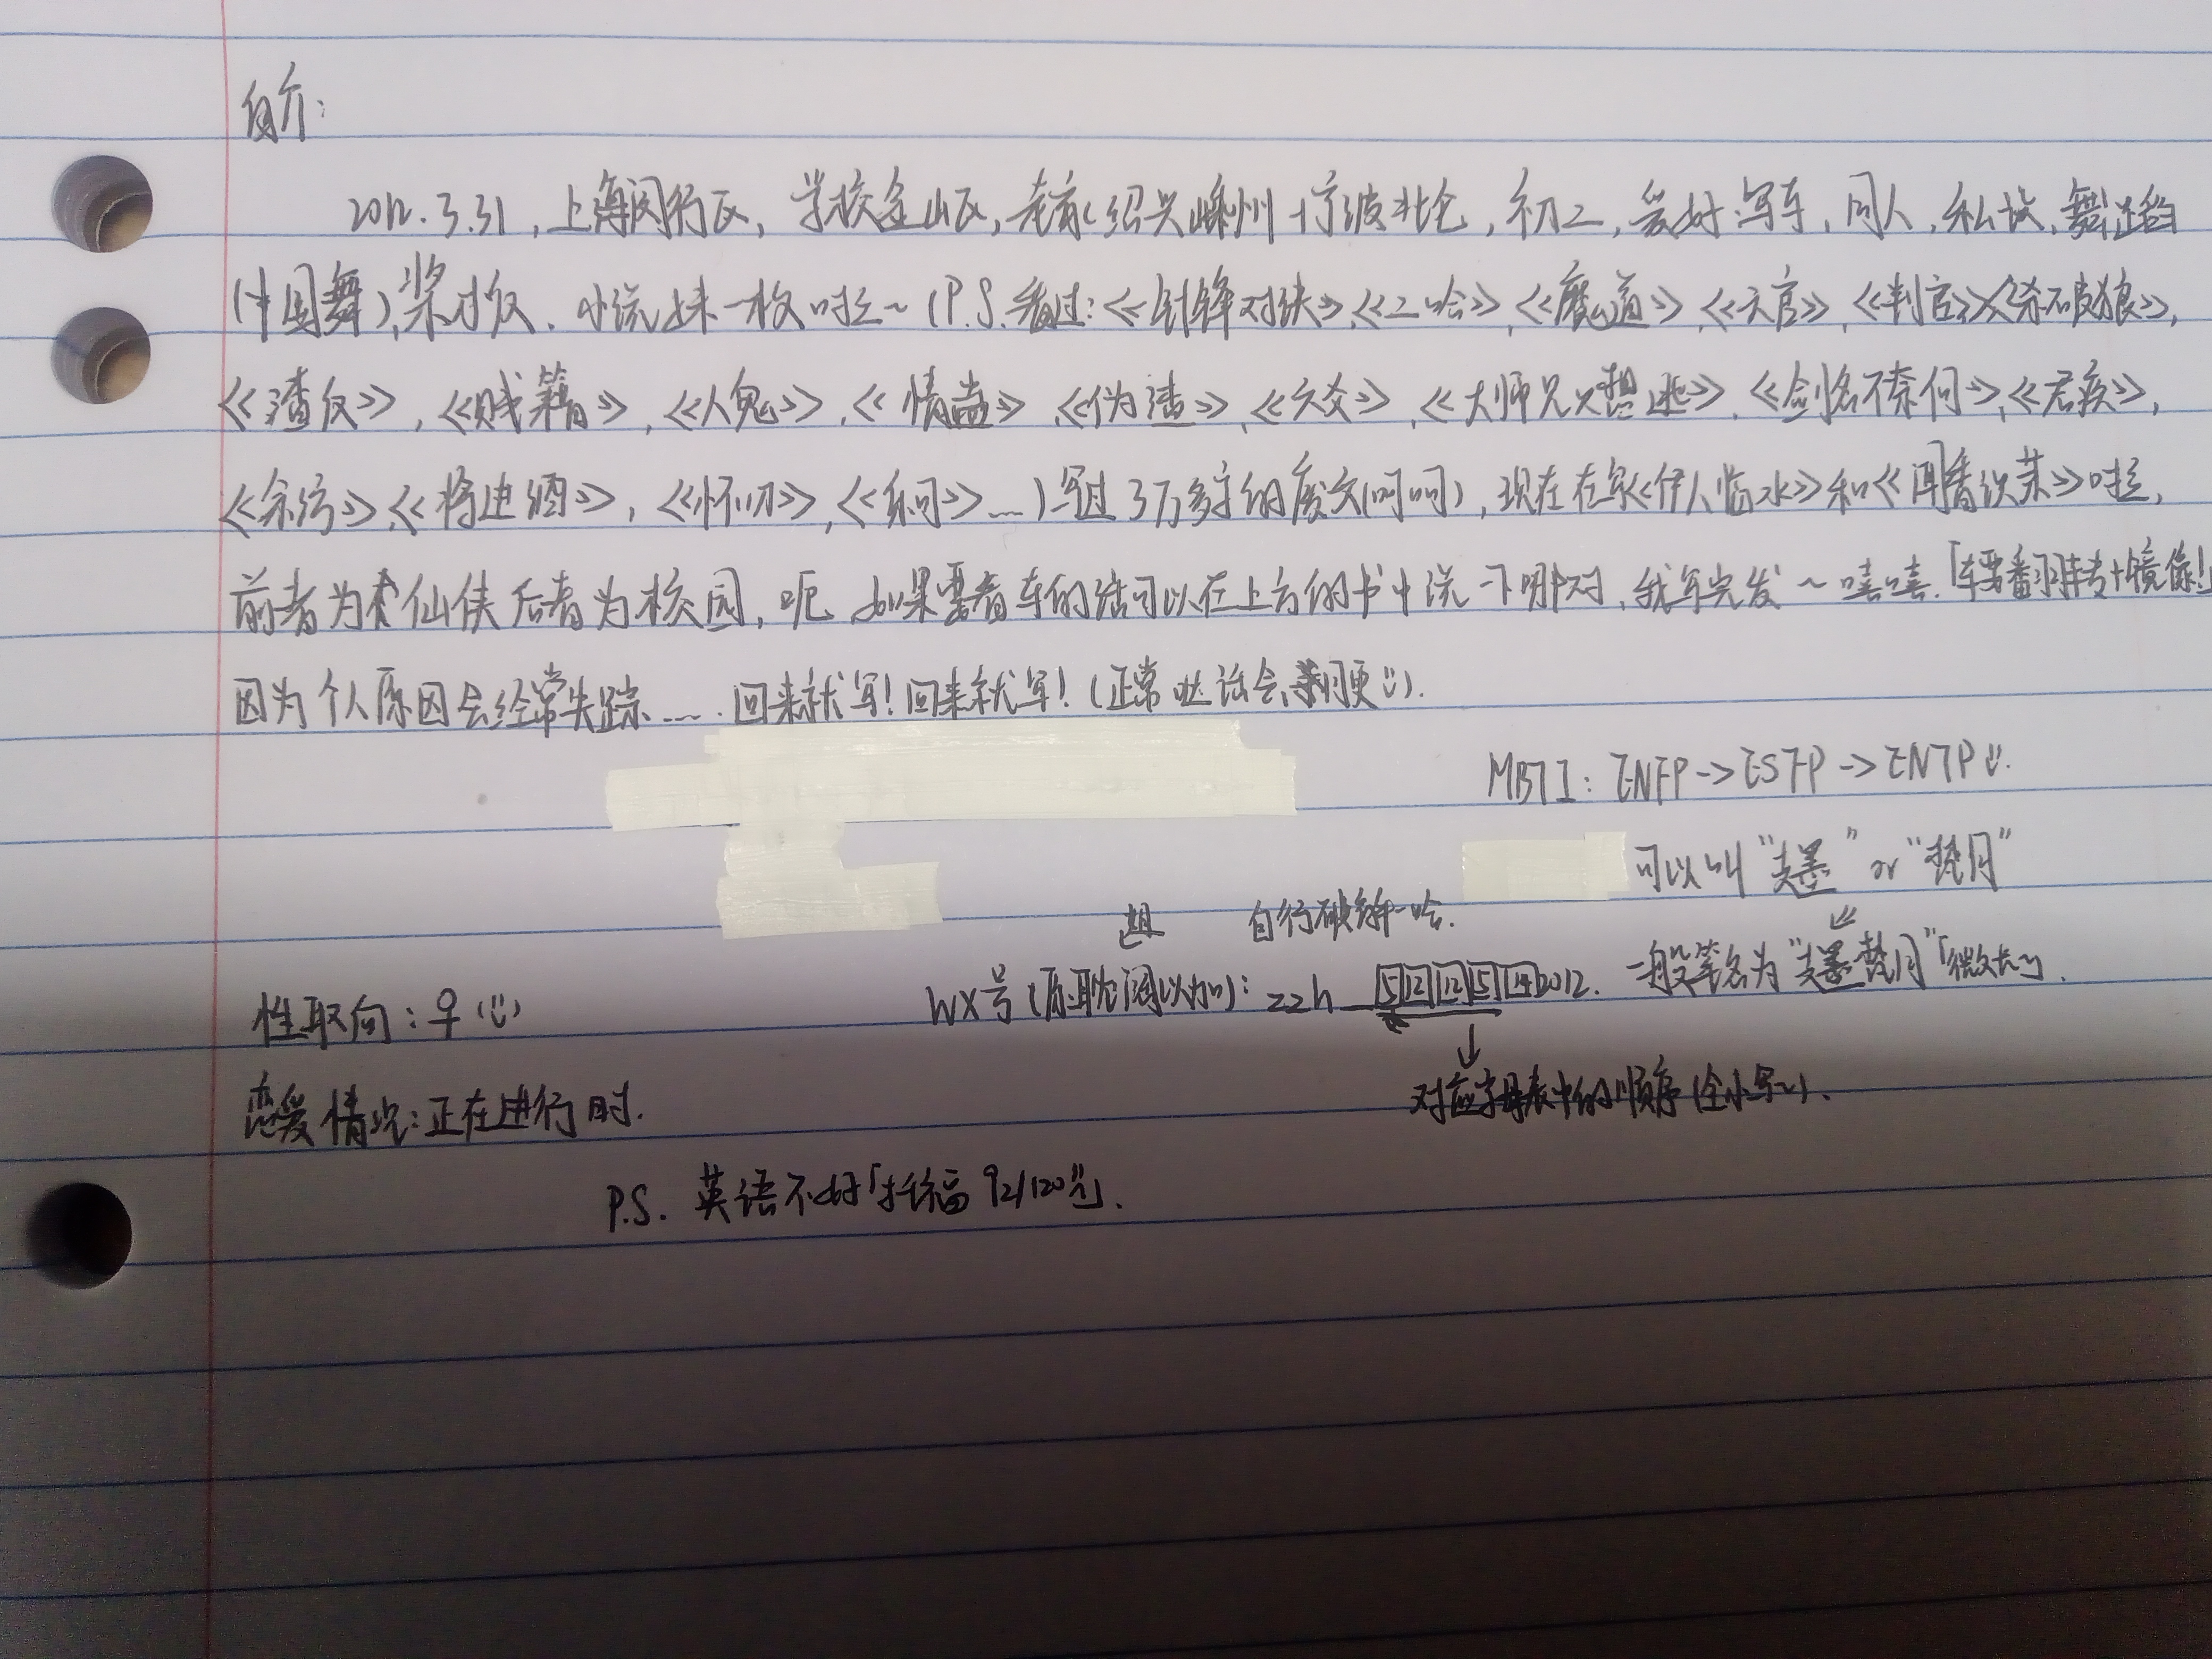 自介:
2012.3.31,上海闵行区,学校金山区,老家绍兴嵊州+宁波北仑,初二,爱好:写车,同人,私设,舞蹈
(中国舞),桨板,小说妹一枚哈~(P.S.看过:《针锋对决》,《二哈》,《魔道》,《天官》,《判官》《杀破狼》,
《渣反》,《贱籍》,《人鬼》,《情蛊》,《伪渣》,《六爻》,《大师兄只想逃》,《剑名不奈何》,《君疾》,
《余污》,《将进酒》,《怀刃》,《銅》……)写过3万多字的废文(呵呵),现在在写《伊人临水》和《
前者为仙侠后者为校园,呃 如果要看车的话可以在上方的书中说一下哪对,我写完发~嘻嘻.「车要翻转+镜像!」
因为个人原因会经常失踪……回来就写!回来就写!(正常哒话会 更ت).
MBTI: ENFP->ESFP->ENTPت.
可以叫"墨" or "楚月"
超 自行破解一哈.
WX号(原耽 可以加): zzh 5 12 12 5 14 2012. 一般笔名为"墨楚月"「微长~」.
性取向:♀(ت)
对应字母表中的顺序(全小写~).
恋爱情况:正在进行时.
P.S. 英语不好「托福92/120ت」.